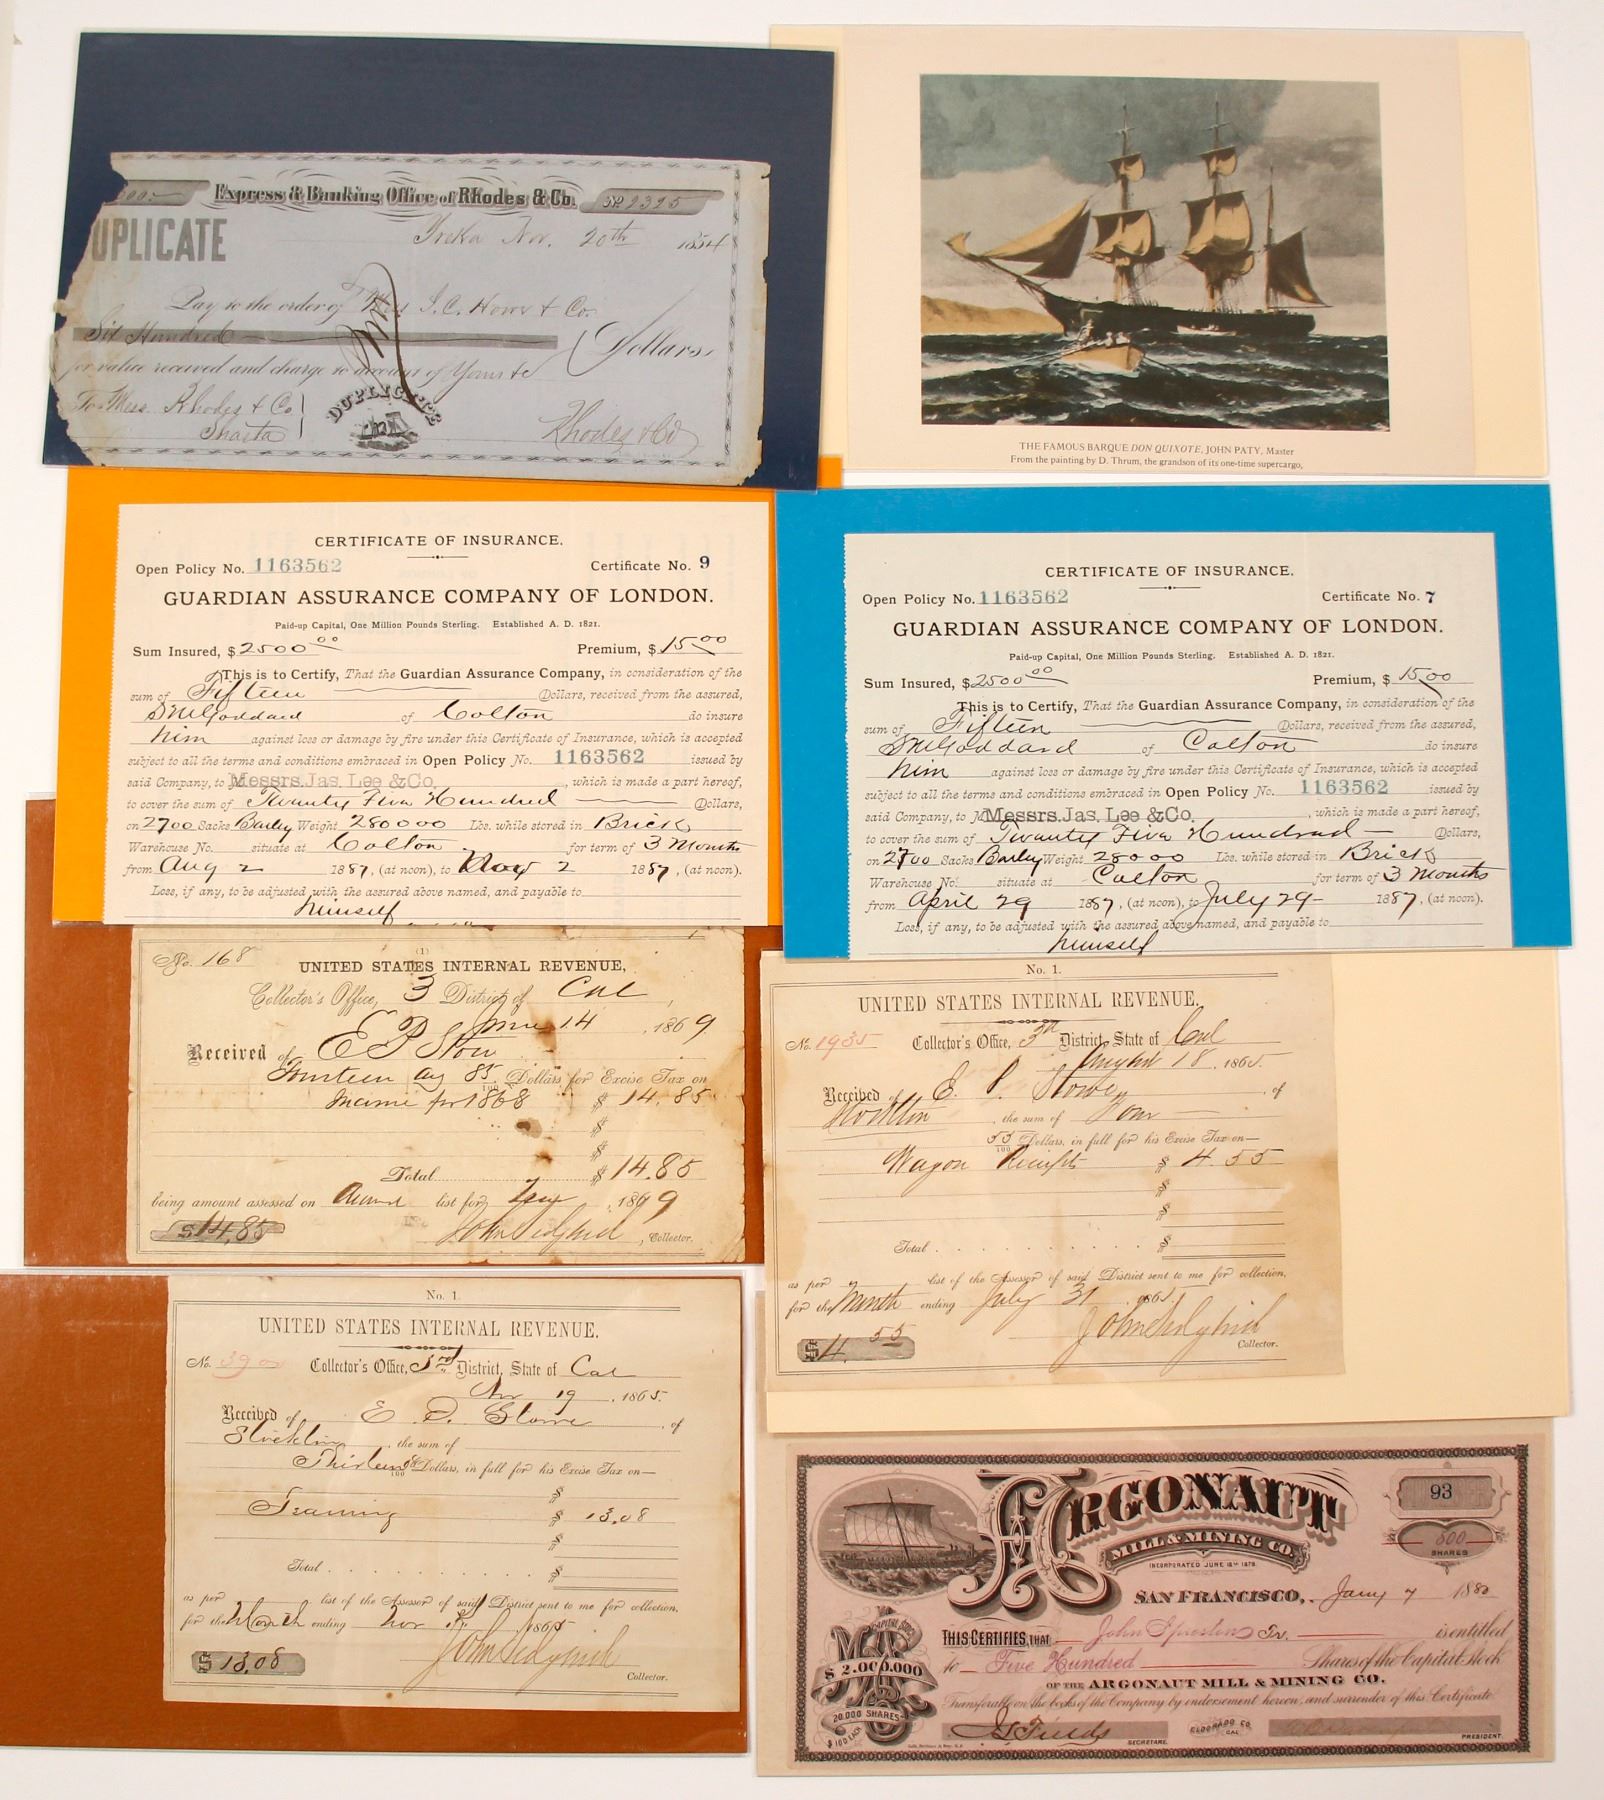 Express & Banking Office of Rhodes & Co.
No 2325
UPLICATE
Yreka Nov. 20th 1854
Pay to the order of Mess J. C. Howe & Co.
Six Hundred Dollars
for value received and charge to account of Yours &c
To Mess. Rhodes & Co
Shasta
DUPLICATE
Rhodes & Co
THE FAMOUS BARQUE DON QUIXOTE, JOHN PATY, Master
From the painting by D. Thrum, the grandson of its one-time supercargo,
CERTIFICATE OF INSURANCE.
Open Policy No. 1163562 Certificate No. 9
GUARDIAN ASSURANCE COMPANY OF LONDON.
Paid-up Capital, One Million Pounds Sterling. Established A. D. 1821.
Sum Insured, $ 2500 00 Premium, $ 15 00
This is to Certify, That the Guardian Assurance Company, in consideration of the
sum of Fifteen Dollars, received from the assured,
Goddard of Colton do insure
him against loss or damage by fire under this Certificate of Insurance, which is accepted
subject to all the terms and conditions embraced in Open Policy No. 1163562 issued by
said Company, to Messrs. Jas. Lee & Co. , which is made a part hereof,
to cover the sum of Twenty Five Hundred Dollars,
on 2700 Sacks Barley Weight 280000 Lbs. while stored in Brick
Warehouse No. situate at Colton for term of 3 Months
from Aug 2 1887, (at noon), to Nov 2 1887, (at noon).
Loss, if any, to be adjusted with the assured above named, and payable to
himself
CERTIFICATE OF INSURANCE.
Open Policy No. 1163562 Certificate No. 7
GUARDIAN ASSURANCE COMPANY OF LONDON.
Paid-up Capital, One Million Pounds Sterling. Established A. D. 1821.
Sum Insured, $ 2500 00 Premium, $ 15 00
This is to Certify, That the Guardian Assurance Company, in consideration of the
sum of Fifteen Dollars, received from the assured,
Goddard of Colton do insure
him against loss or damage by fire under this Certificate of Insurance, which is accepted
subject to all the terms and conditions embraced in Open Policy No. 1163562 issued by
said Company, to M Messrs. Jas. Lee & Co. , which is made a part hereof,
to cover the sum of Twenty Five Hundred Dollars,
on 2700 Sacks Barley Weight 28000 Lbs. while stored in Brick
Warehouse No. situate at Colton for term of 3 Months
from April 29 1887, (at noon), to July 29 1887, (at noon).
Loss, if any, to be adjusted with the assured above named, and payable to
himself
(1)
No. 168
UNITED STATES INTERNAL REVENUE,
Collector's Office, 3 District of Cal ,
June 14 , 1869
Received of E P Stow
Fourteen 85/100 Dollars for Excise Tax on
Income for 1868 $ 14.85
$
$
Total $ 14.85
being amount assessed on Annual list for , 1869
$14.85
John Sedgwick , Collector.
No. 1.
UNITED STATES INTERNAL REVENUE.
No. 1935 Collector's Office, 3d District, State of Cal
August 18 , 1865.
Received of E. P. Stowe, of
Stockton , the sum of Four
55/100 Dollars, in full for his Excise Tax on—
Wagon Receipts $ 4.55
$
$
Total $
as per list of the Assessor of said District sent to me for collection,
for the Month ending July 31 , 1865.
$ 4. 55
John Sedgwick
Collector.
No. 1.
UNITED STATES INTERNAL REVENUE.
No. Collector's Office, 3rd District, State of Cal
Nov 19 , 1865.
Received of E P. Stowe , of
Stockton , the sum of
Thirteen 08/100 Dollars, in full for his Excise Tax on—
$
Teaming $ 13.08
$
Total $
as per list of the Assessor of said District sent to me for collection,
for the Month ending Nov , 1865
$ 13.08
John Sedgwick
Collector.
ARGONAUT
MILL & MINING CO.
INCORPORATED JUNE 18TH 1879.
93
500
SHARES
SAN FRANCISCO, Jany 7 1880
THIS CERTIFIES, THAT John Jr. is entitled
to Five Hundred Shares of the Capital Stock
OF THE ARGONAUT MILL & MINING CO.
Transferable on the books of the Company by endorsement hereon, and surrender of this Certificate
CAPITAL STOCK
$ 2.000.000
20.000 SHARES
$ 100 EACH
Fields
SECRETARE.
ELDORADO CO.
CAL.
PRESIDENT.